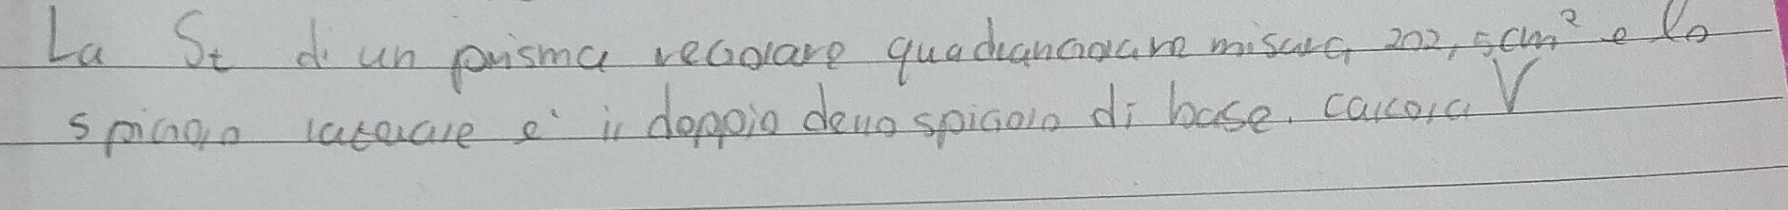 La St di un prisma regolare quadrangolare misura 202,5cm² e lo
spigolo laterale e' il doppio dello spigolo di base. calcola V